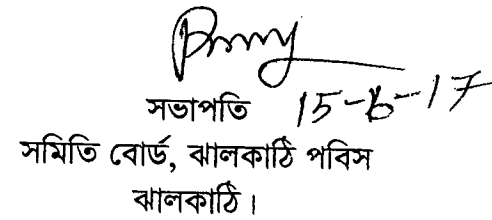 সভাপতি 15-6-17
সমিতি বোর্ড, ঝালকাঠি পবিস
ঝালকাঠি।